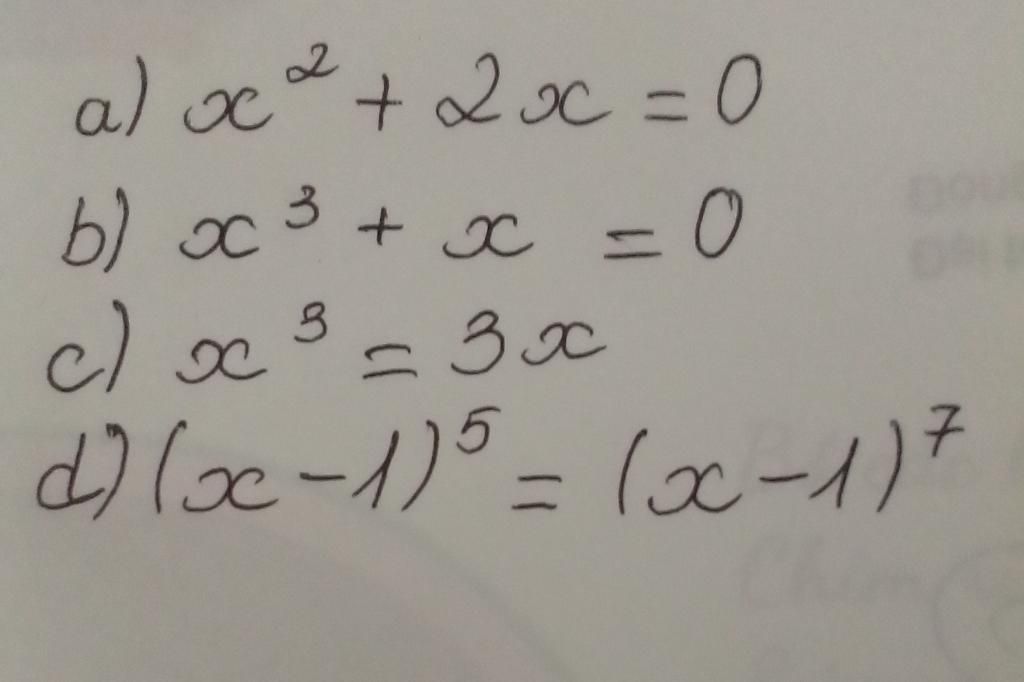 a) x² + 2x = 0
b) x³ + x = 0
c) x³ = 3x
d) (x-1)⁵ = (x-1)⁷